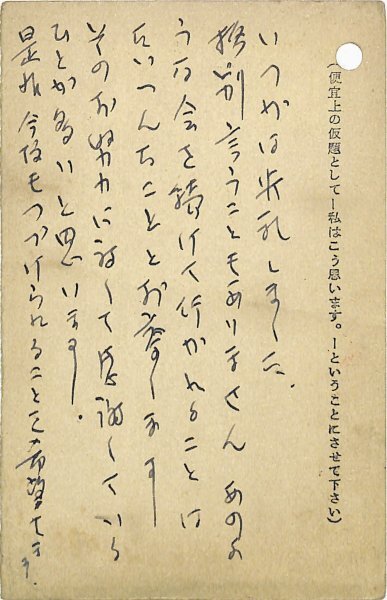 (便宜上の仮題として―私はこう思います。―ということにさせて下さい)
いつかは失礼しました。
格別言うこともありません あのよ
うな会を続けて行かれることは
たいへんなこととお察ししますし
そのお努力に対して感謝している
ひとが多いと思います。
是非今後もつづけられることを希望します。